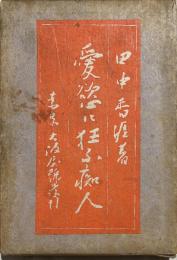 田中香涯著
愛慾に狂ふ痴人
東京 大阪屋號発行